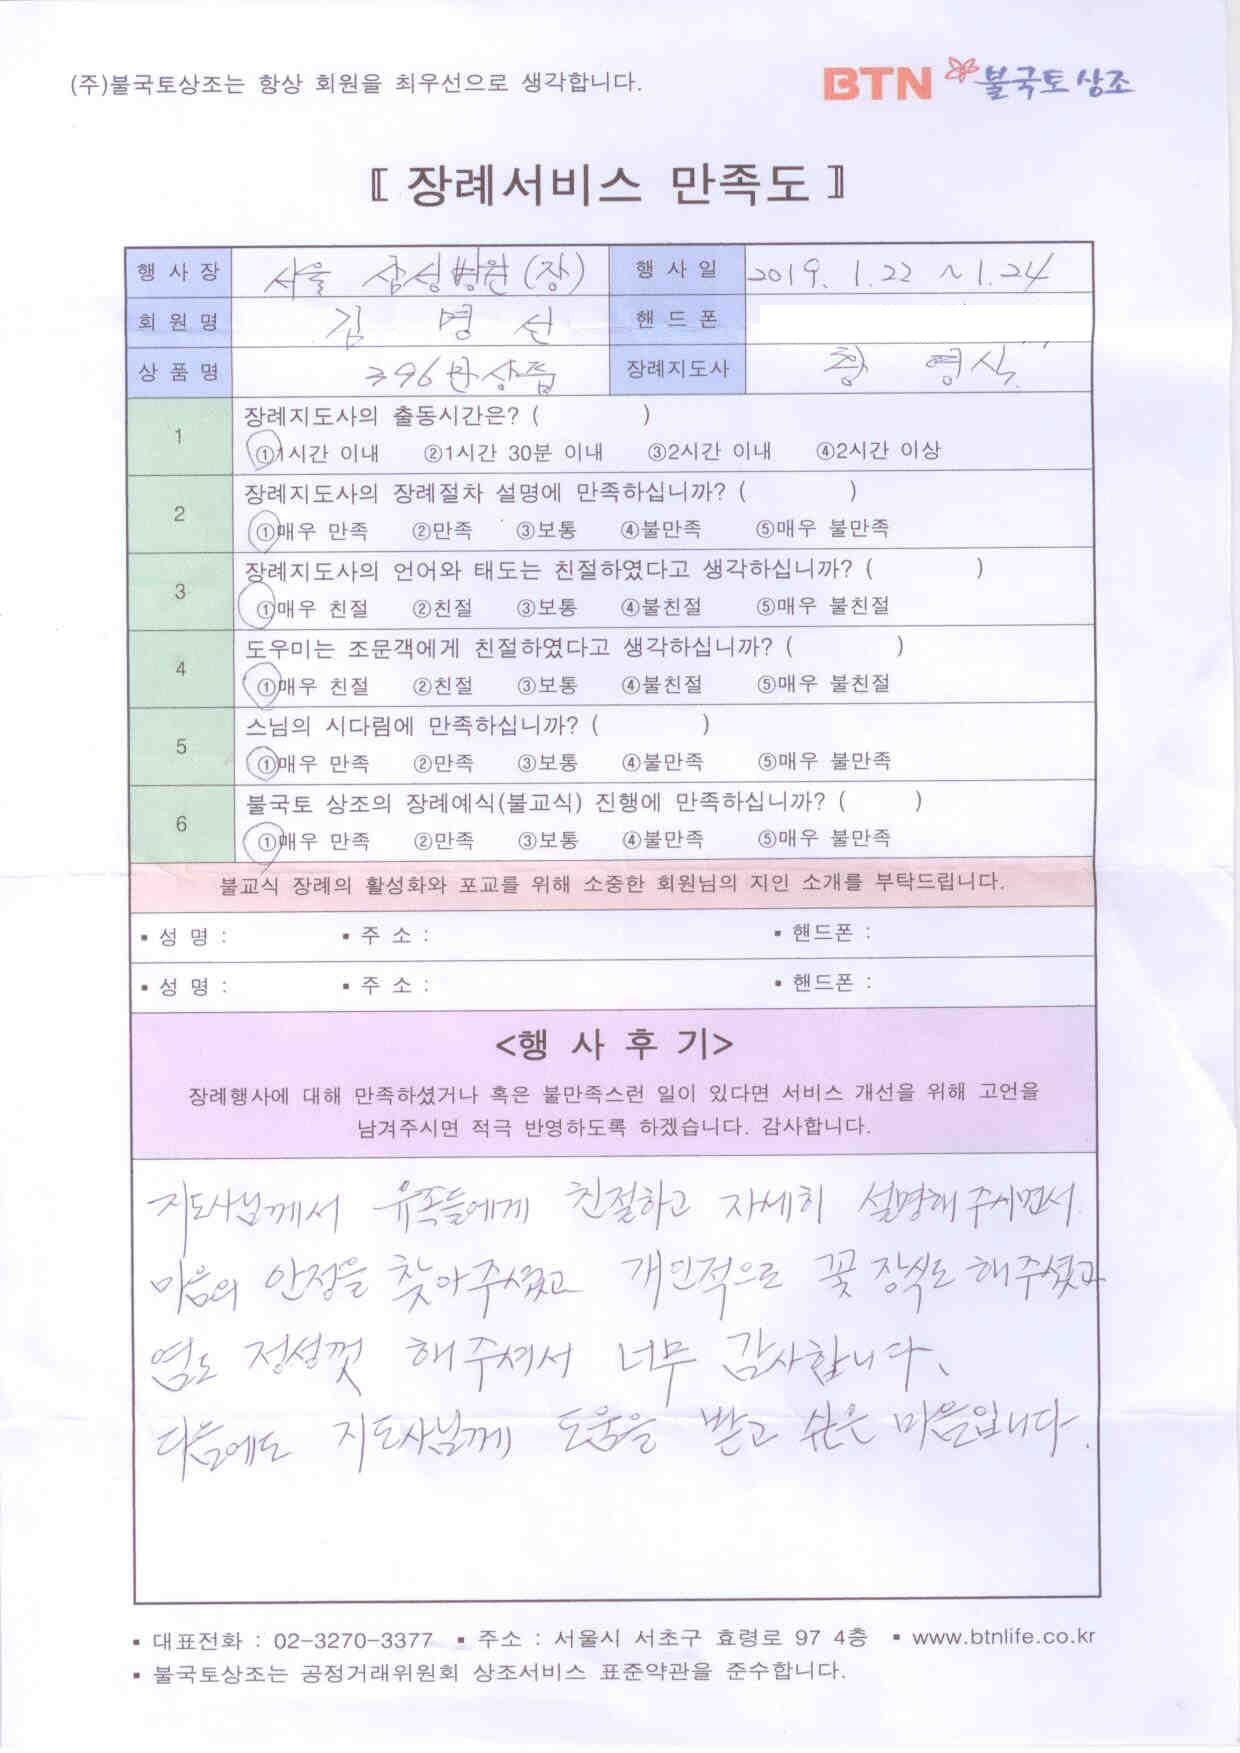 (주)불국토상조는 항상 회원을 최우선으로 생각합니다.
BTN 불국토 상조
〖 장례서비스 만족도 〗
행 사 장 서울 삼성병원(장) 행 사 일 2019. 1. 22 ~ 1. 24
회 원 명 김 명 선 핸 드 폰
상 품 명 396만상품 장례지도사 황 명식
1 장례지도사의 출동시간은? ( )
①1시간 이내 ②1시간 30분 이내 ③2시간 이내 ④2시간 이상
2 장례지도사의 장례절차 설명에 만족하십니까? ( )
①매우 만족 ②만족 ③보통 ④불만족 ⑤매우 불만족
3 장례지도사의 언어와 태도는 친절하였다고 생각하십니까? ( )
①매우 친절 ②친절 ③보통 ④불친절 ⑤매우 불친절
4 도우미는 조문객에게 친절하였다고 생각하십니까? ( )
①매우 친절 ②친절 ③보통 ④불친절 ⑤매우 불친절
5 스님의 시다림에 만족하십니까? ( )
①매우 만족 ②만족 ③보통 ④불만족 ⑤매우 불만족
6 불국토 상조의 장례예식(불교식) 진행에 만족하십니까? ( )
①매우 만족 ②만족 ③보통 ④불만족 ⑤매우 불만족
불교식 장례의 활성화와 포교를 위해 소중한 회원님의 지인 소개를 부탁드립니다.
▪ 성 명 : ▪ 주 소 : ▪ 핸드폰 :
▪ 성 명 : ▪ 주 소 : ▪ 핸드폰 :
<행 사 후 기>
장례행사에 대해 만족하셨거나 혹은 불만족스런 일이 있다면 서비스 개선을 위해 고언을
남겨주시면 적극 반영하도록 하겠습니다. 감사합니다.
지도사님께서 유족들에게 친절하고 자세히 설명해 주시면서
마음의 안정을 찾아주셨고 개인적으로 꽃 장식도 해주셨고
염도 정성껏 해 주셔서 너무 감사합니다.
다음에도 지도사님께 도움을 받고 싶은 마음입니다.
▪ 대표전화 : 02-3270-3377 ▪ 주소 : 서울시 서초구 효령로 97 4층 ▪ www.btnlife.co.kr
▪ 불국토상조는 공정거래위원회 상조서비스 표준약관을 준수합니다.